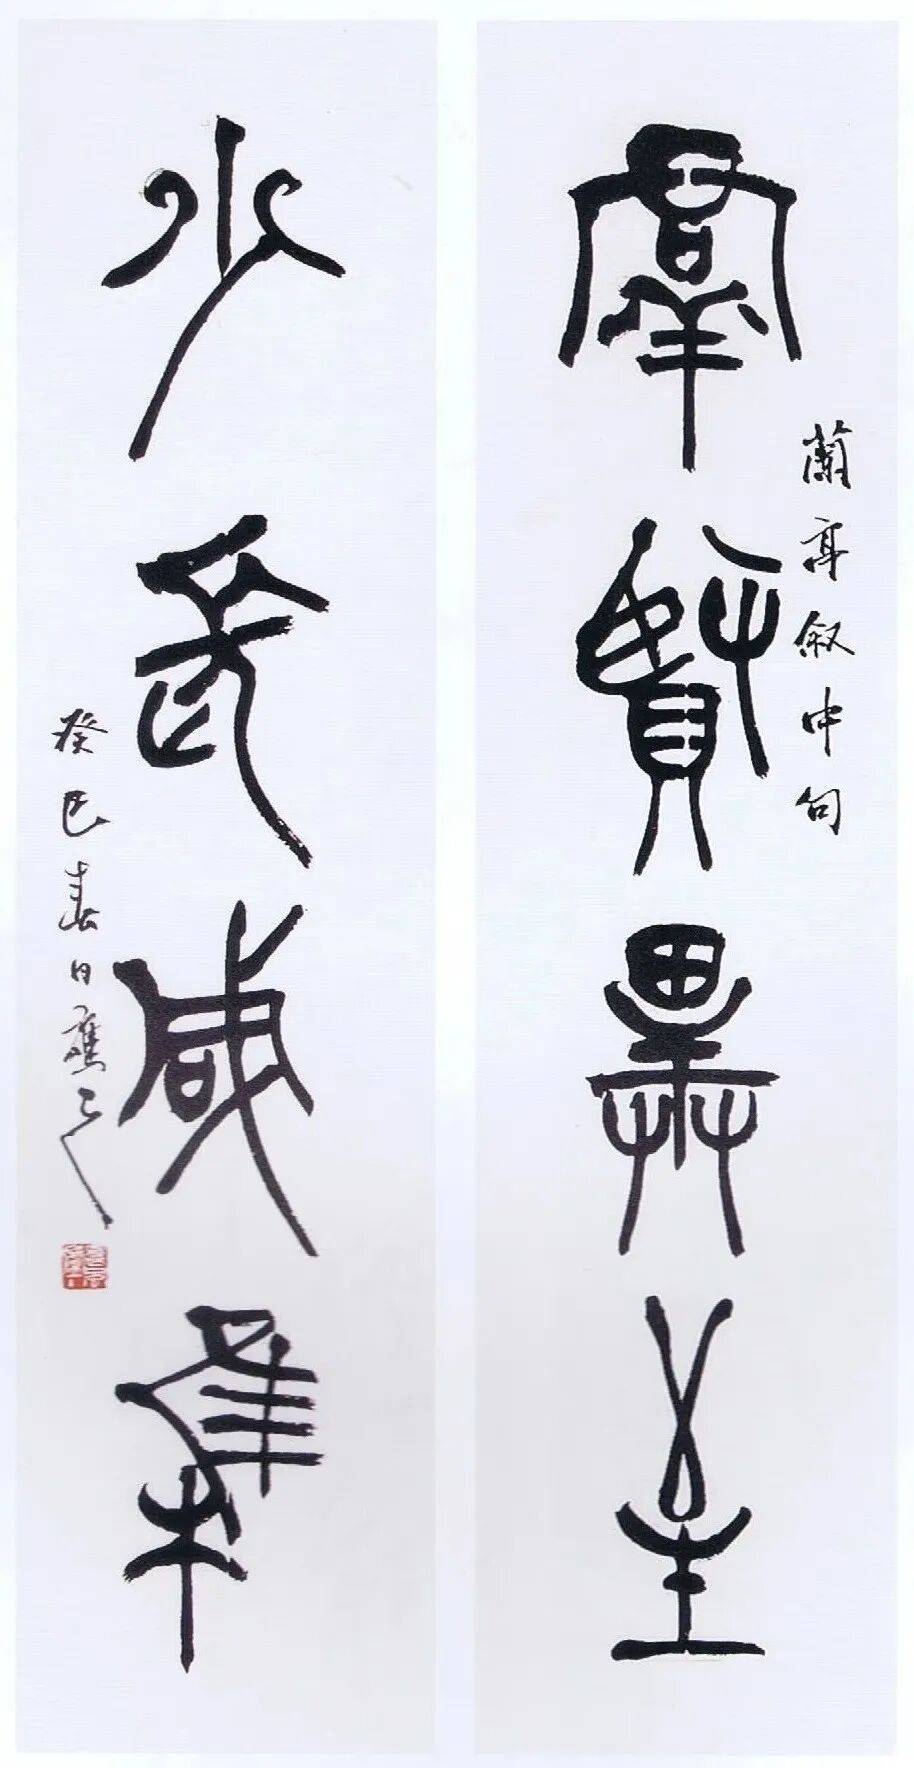 群賢畢至
蘭亭叙中句
少長咸集
癸巳春日應之